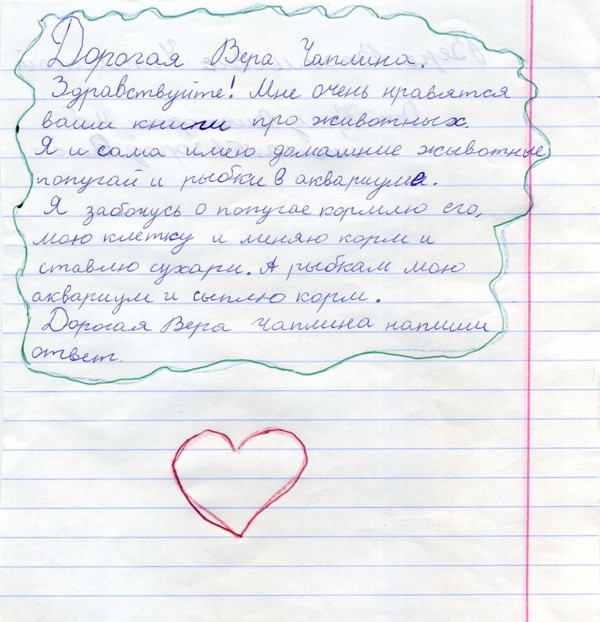 Дорогая Вера Чаплина.
Здравствуйте! Мне очень нравятся
ваши книги про животных.
Я и сама имею домашние жывотные
попугай и рыбки в аквариуме.
Я забочусь о попугае кормлю его,
мою клетку и меняю корм и
ставлю сухари. А рыбкам мою
аквариум и сыплю корм.
Дорогая Вера Чаплина напиши
ответ.